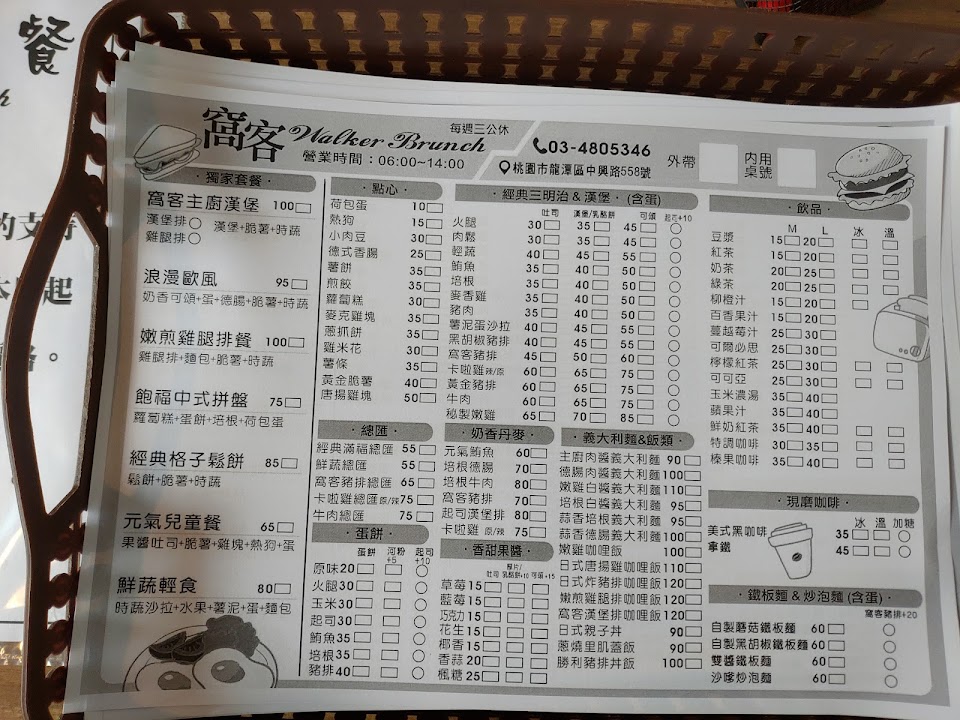 餐
的支持
起
。
窩客 Walker Brunch
每週三公休
營業時間：06:00~14:00
03-4805346
桃園市龍潭區中興路558號
外帶
內用
桌號
·獨家套餐·
窩客主廚漢堡 100
漢堡排 漢堡+脆薯+時蔬
雞腿排
浪漫歐風 95
奶香可頌+蛋+德腸+脆薯+時蔬
嫩煎雞腿排餐 100
雞腿排+麵包+脆薯+時蔬
飽福中式拼盤 75
蘿蔔糕+蛋餅+培根+荷包蛋
經典格子鬆餅 85
鬆餅+脆薯+時蔬
元氣兒童餐 65
果醬吐司+脆薯+雞塊+熱狗+蛋
鮮蔬輕食 80
時蔬沙拉+水果+薯泥+蛋+麵包
·點心·
荷包蛋 10
熱狗 15
小肉豆 30
德式香腸 25
薯餅 35
煎餃 35
蘿蔔糕 30
麥克雞塊 35
蔥抓餅 35
雞米花 30
薯條 35
黃金脆薯 40
唐揚雞塊 50
·經典三明治 & 漢堡· (含蛋)
吐司 漢堡/乳酪餅 可頌 起司+10
火腿 30 35 45
肉鬆 30 35 45
輕蔬 30 35 45
鮪魚 35 40 50
培根 35 40 50
麥香雞 35 40 50
豬肉 35 40 50
薯泥蛋沙拉 40 45 55
黑胡椒豬排 40 45 55
窩客豬排 45 50 60
卡啦雞辣/原 60 65 75
黃金豬排 60 65 75
牛肉 60 65 75
秘製嫩雞 65 70 85
·飲品·
M L 冰 溫
豆漿 15 20
紅茶 15 20
奶茶 20 25
綠茶 20 25
柳橙汁 15 20
百香果汁 15 20
蔓越莓汁 25 30
可爾必思 25 30
檸檬紅茶 35 40
可可亞 25 30
玉米濃湯 35 40
蘋果汁 35 40
鮮奶紅茶 35 40
特調咖啡 30 35
榛果咖啡 35 40
·總匯·
經典滿福總匯 55
鮮蔬總匯 55
窩客豬排總匯 65
卡啦雞總匯原/辣 75
牛肉總匯 75
·奶香丹麥·
元氣鮪魚 60
培根德腸 70
培根牛肉 80
窩客豬排 70
起司漢堡排 80
卡啦雞 原/辣 75
·義大利麵&飯類·
主廚肉醬義大利麵 90
德腸肉醬義大利麵 100
嫩雞白醬義大利麵 110
培根白醬義大利麵 95
蒜香培根義大利麵 95
蒜香德腸義大利麵 100
嫩雞咖哩飯 100
日式唐揚雞咖哩飯 110
日式炸豬排咖哩飯 120
嫩煎雞腿排咖哩飯 120
窩客漢堡排咖哩飯 120
日式親子丼 90
蔥燒里肌蓋飯 90
勝利豬排丼飯 100
·現磨咖啡·
冰 溫 加糖
美式黑咖啡 35
拿鐵 45
·蛋餅·
蛋餅 河粉+5 起司+10
原味 20
火腿 30
玉米 30
起司 30
鮪魚 35
培根 35
豬排 40
·香甜果醬·
吐司 厚片/乳酪餅+10 可頌+15
草莓 15
藍莓 15
巧克力 15
花生 15
椰香 15
香蒜 20
楓糖 25
·鐵板麵 & 炒泡麵 (含蛋)·
窩客豬排+20
自製蘑菇鐵板麵 60
自製黑胡椒鐵板麵 60
雙醬鐵板麵 60
沙嗲炒泡麵 60